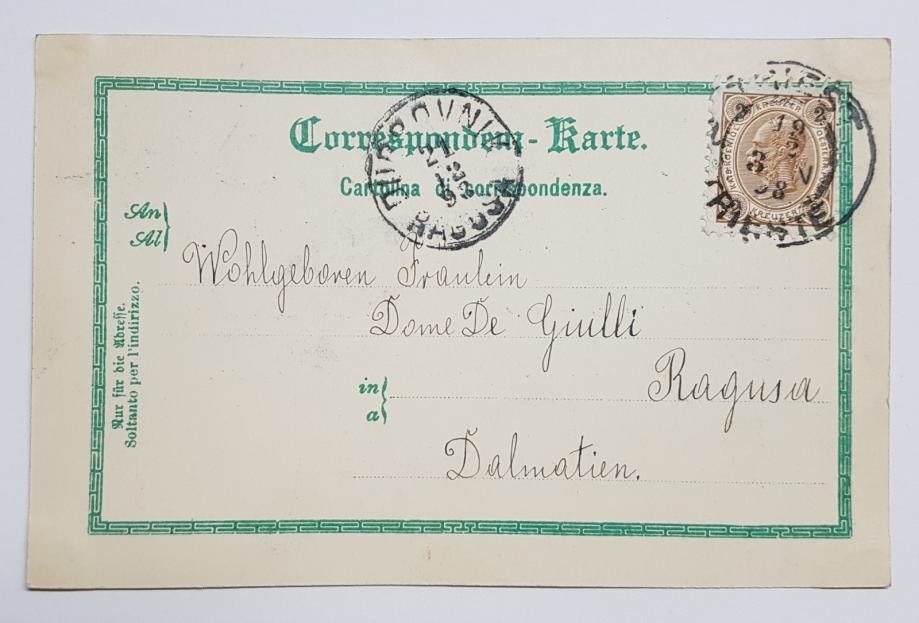 Correspondenz-Karte.
Cartolina di corrispondenza.
DUBROVNIK
RAGUSA
TRIESTE
2
2
KREUZER
An
Al
Wohlgeboren Fraulein
Dome De Giulli
in
a
Ragusa
Dalmatien.
Nur für die Adresse.
Soltanto per l'indirizzo.